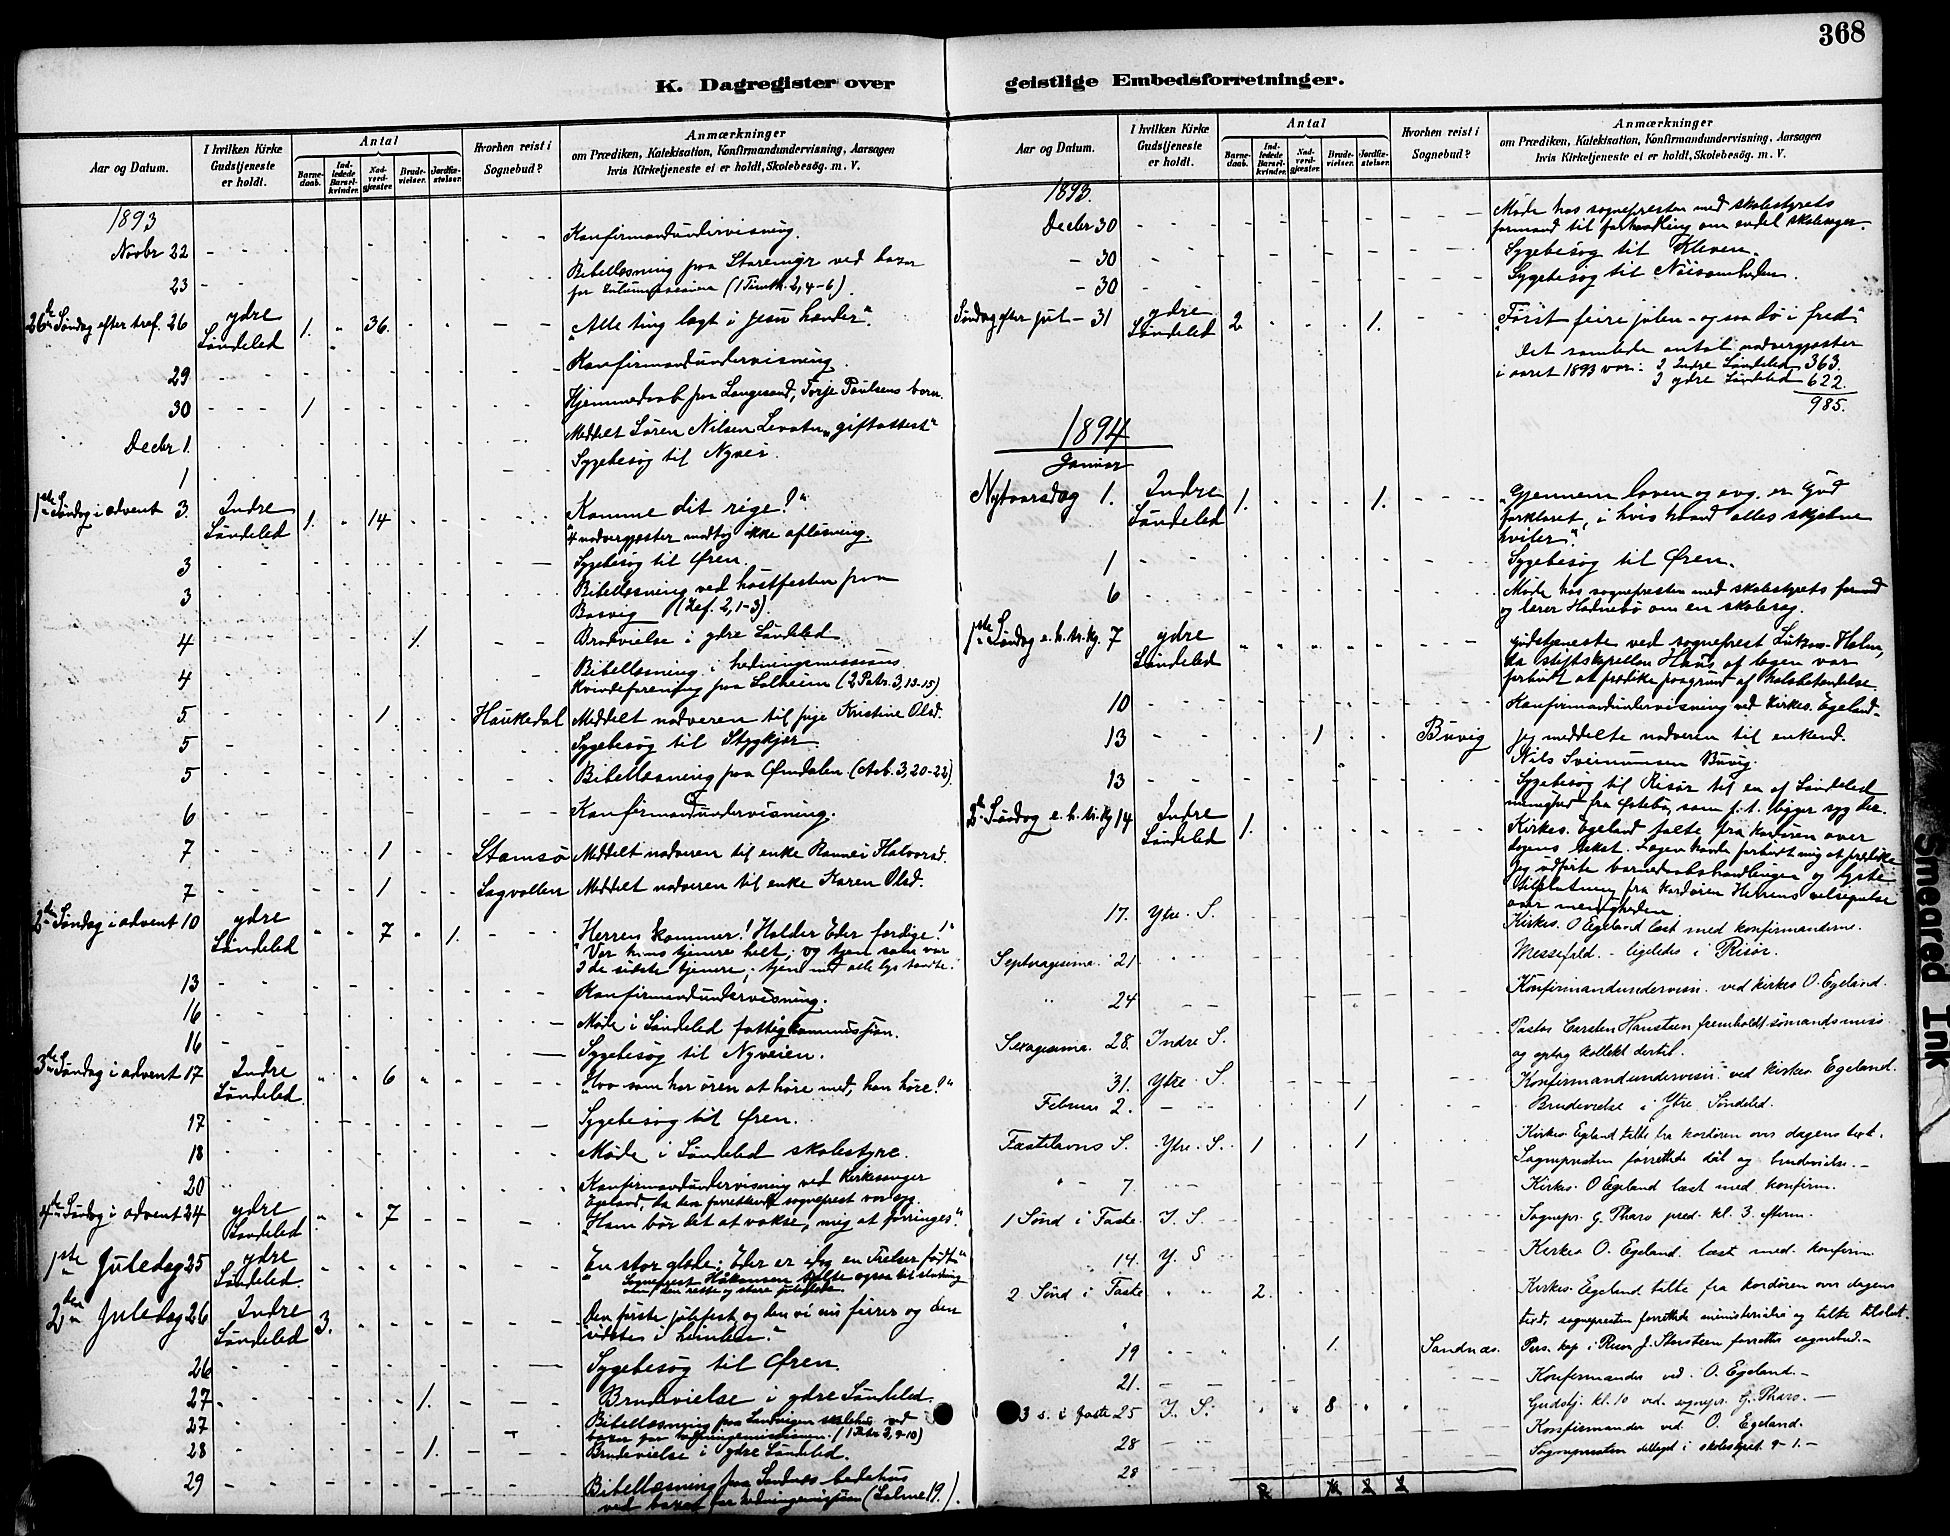 368
K. Dagregister over
geistlige Embedsforretninger.
Aar og Datum.
I hvilken Kirke Gudstjeneste er holdt.
Antal
Barne-daab.
Ind-ledede Barsel-kvinder.
Nad-verd-gjæster.
Brude-vielser.
Jordfæ-stelser.
Hvorhen reist i Sognebud?
Anmærkninger
om Prædiken, Katekisation, Konfirmandundervisning, Aarsagen
hvis Kirketjeneste ei er holdt, Skolebesøg. m. V.
1893
Novbr 22 Konfirmandundervisning.
23 Bibellæsning paa Staremyr ved basar
(1 Timoth. 2, 4-6).
26de Søndag efter tref. 26 ydre Søndeled 1. " 36. "Alle ting lagt i Jesu hænder".
29 Konfirmandundervisning.
30 1 Hjemmedaab paa Langesand, Torje Paulsens barn.
Decbr 1. Meddelt Søren Nilsen "giftattest"
1 Sygebesøg til Nyvei.
1ste Søndag i advent 3. Indre Søndeled 1. " 14 "Komme dit rige!"
4 nadvergjæster modtog ikke afløsning.
3 Sygebesøg til Øren.
3 Bibellæsning ved høstfesten paa
Bosvig (Zef. 2, 1-3).
4 1. Brudevielse i ydre Søndeled
4 Bibellæsning i hedningemissions
kvindeforening paa Solheim (2 Petr. 3, 13-15).
5. 1. Haukedal Meddelt nadveren til pige Kristine Olsd.
5 Sygebesøg til Stygkjær.
5 Bibellæsning paa Ømdalen (Aab. 3, 20-22)
6 Konfirmandundervisning.
7 1 Stamsø Meddelt nadveren til enke Rannei Halvorsd.
7 1 Lagvollen Meddelt nadveren til enke Karen Olsd.
2den Søndag i advent 10 ydre Søndeled " " 7 " 1. "Herren kommer! Holder Eder færdige!"
Vær hans tjenere helt, og tjen som var
I de sidste tjenere; tjen med alle lys tændte."
13 Konfirmandundervisning.
16 Møde i Søndeled fattigkommission.
16 Sygebesøg til Nyveien.
3die Søndag i advent 17 Indre Søndeled. " " 6 " "Hvo som har øren at høre med, han høre!"
17 Sygebesøg til Øren.
18 Møde i Søndeled skolestyre.
20 Konfirmandundervisning ved Kirkesanger
Egeland, da den forrettende sogneprest var syg.
4de Søndag i advent 24 ydre Søndeled " " 7 "Ham bør det at vokse, mig at forringes".
1ste Juledag 25 ydre Søndeled. "En stor glæde; Eder er idag en Frelser født"
Sogneprest Håkonsen talte ogsaa til slutning
2den Juledag 26 Indre Søndeled 3. "Den første julefest og den vi nu feirer og den
sidste i himlen."
26 Sygebesøg til Øren.
27 1. Brudevielse i ydre Søndeled.
27 Bibellæsning paa Sandvigen skolehus ved
basar for hedningemissionen. (1 Petr 2, 9-10)
28 1. Brudevielse i ydre Søndeled.
29 Bibellæsning paa Sandnes bedehus
ved basar for hedningemission (Salme 19.).
Aar og Datum.
I hvilken Kirke Gudstjeneste er holdt.
Antal
Barne-daab.
Ind-ledede Barsel-kvinder.
Nad-verd-gjæster.
Brude-vielser.
Jordfæ-stelser.
Hvorhen reist i Sognebud?
Anmærkninger
om Prædiken, Katekisation, Konfirmandundervisning, Aarsagen
hvis Kirketjeneste ei er holdt, Skolebesøg. m. V.
1893.
Decbr 30 Møde hos sognepresten med skolestyrets
formand til forhandling om endel skolesager.
- 30 Sygebesøg til Kleven.
- 30 Sygebesøg til
Søndag efter jul - 31 ydre Søndeled 2. 1. "Først feire julen - og saa dø i fred".
Det samlede antal nadvergjæster
i aaret 1893 var: I Indre Søndeled 363.
I ydre Søndeled 622.
985.
1894
Januar
Nytaarsdag 1. Indre Søndeled 1. 1. "Gjennem loven og evg. er Gud
forklaret, i hvis haand alles skjæbne
hviler".
1 Sygebesøg til Øren.
6 Møde hos sognepresten med skolestyrets formand
og lærer Hødnebø om en skolesag.
1ste Søndag e. h. tr. kg. 7 ydre Søndeled Gudstjeneste ved sogneprest Lützow-Holm,
da stiftskapellan Hans af lægen var
forbudt at prædike paagrund af halsbetændelse.
10 Konfirmandundervisning ved Kirkes. Egeland-
13 1 Buvig Jeg meddelte nadveren til enkemd.
Nils Sveinumsen Buvig.
13 Sygebesøg til Risør til en af Søndeled
menighed fra som f. t. ligger syg der.
2den Søndag e. h. tr. kg 14 Indre Søndeled 1. Kirkes. Egeland talte fra kordøren over
dagens tekst. Lægen havde forbudt mig at prædike.
Jeg udførte barnedaabshandlingen og lyste
tilslutning fra kordøren Herrens velsignelse
over menigheden.
17. Ytre. S. Kirkes. O Egeland læst med konfirmanderne.
Septuagesima 21 Messefald. - ligeledes i Risør.
" 24 Konfirmandundervisn. ved kirkes O. Egeland.
Sexagesima. 28. Indre S. Pastor Carsten Hansteen fremholdt sømandsmiss.
og optog kollekt dertil.
31. Ytre. S. Konfirmandundervisn. ved kirkes. Egeland.
Februar 2. 1 Brudevielse i Ytre Søndeled.
Fastelavns S. Ytre. S. 1 1 Kirkes. Egeland talte fra kordøren over dagens text.
Sognepresten forrettede dåb og brudevielse.-
" - 7. Kirkes. O Egeland læst med konfirm.
1 Sønd i Faste. I. S. Sognepr. G. Pharo præd. kl. 3. efterm.
14. Y. S Kirkes O. Egeland. læst med. konfirm.
2. Sønd i Faste " " 2. Kirkes. Egeland talte fra kordøren over dagens
text. sognepresten forrettede ministerielia og talte tilslut.
19 1. Sandnæs. Pers. kap i Risør J. Storsteen forrettes sognebud.-
21. Konfirmander ved. O. Egeland.-
3 s. i faste 25 I. S. 8 Gudstj. kl. 10 ved. sognepr. G. Pharo.-
28 Konfirmander ved. O. Egeland.-
28 Sognepresten deltaget i skolestyret 9-1.-
Smeared Ink